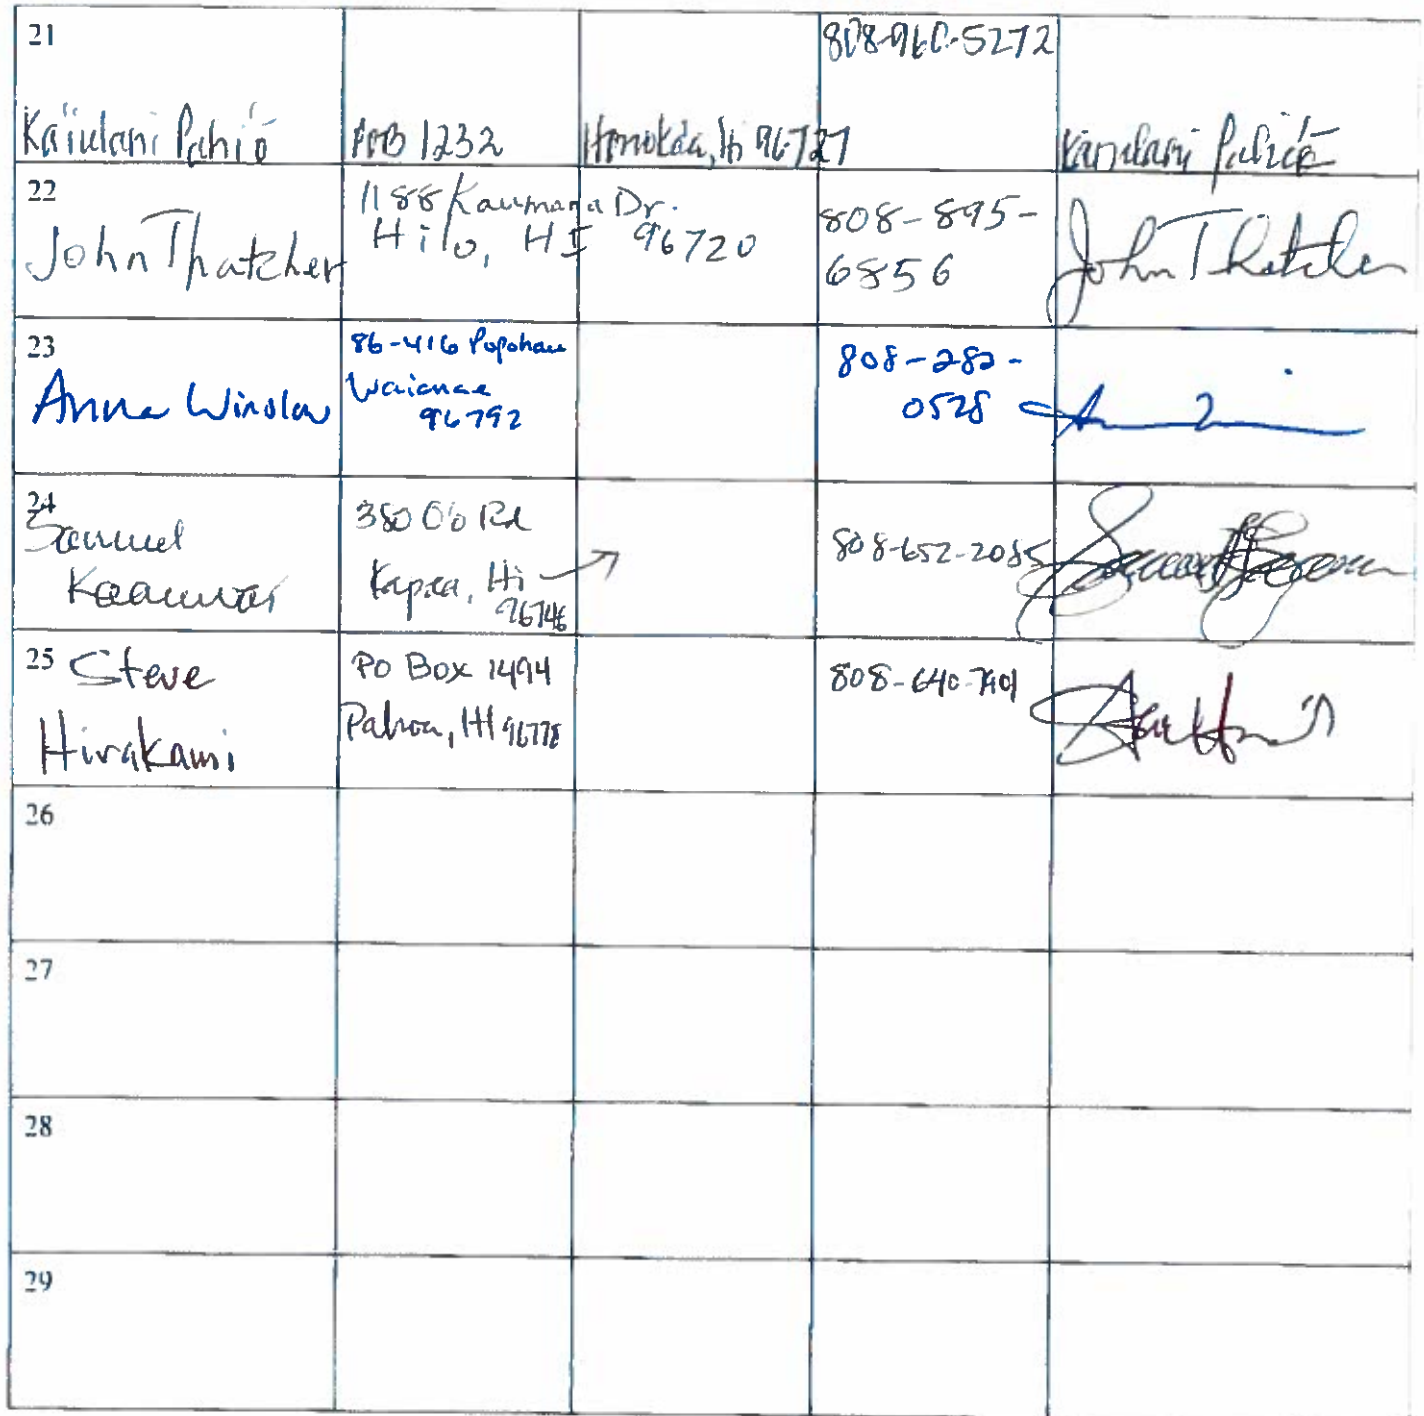 21
808-960-5272
Ka'iulani Pahi'ō
POB 1232
Honoka'a, Hi 96727
22
John Thatcher
1188 Kaumana Dr.
Hilo, HI 96720
808-895-
6856
John Thatcher
23
Anna Winslow
86-416 Popohau
Waianae
96792
808-282-
0528
24
Samuel
Kaauwai
380 Olo Rd
Kapaa, Hi
96746
808-652-2085
25 Steve
Hirakami
PO Box 1494
Pahoa, HI 96778
808-640-7901
26
27
28
29